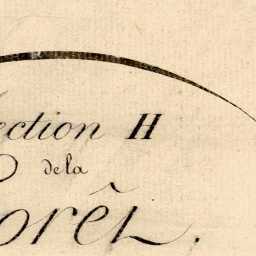 ection H
de la
orêt.